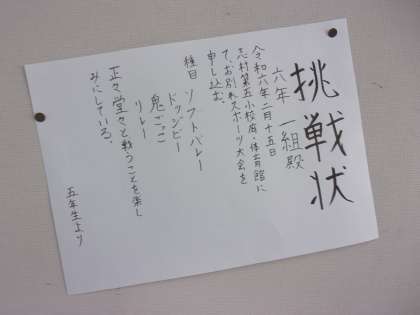 挑戦状
六年一組殿
令和六年二月十五日
志村第五小校庭・体育館に
て、お別れスポーツ大会を
申し込む。
種目 ソフトバレー
ドッジビー
鬼ごっこ
リレー
正々堂々と戦うことを楽し
みにしている。
五年生より